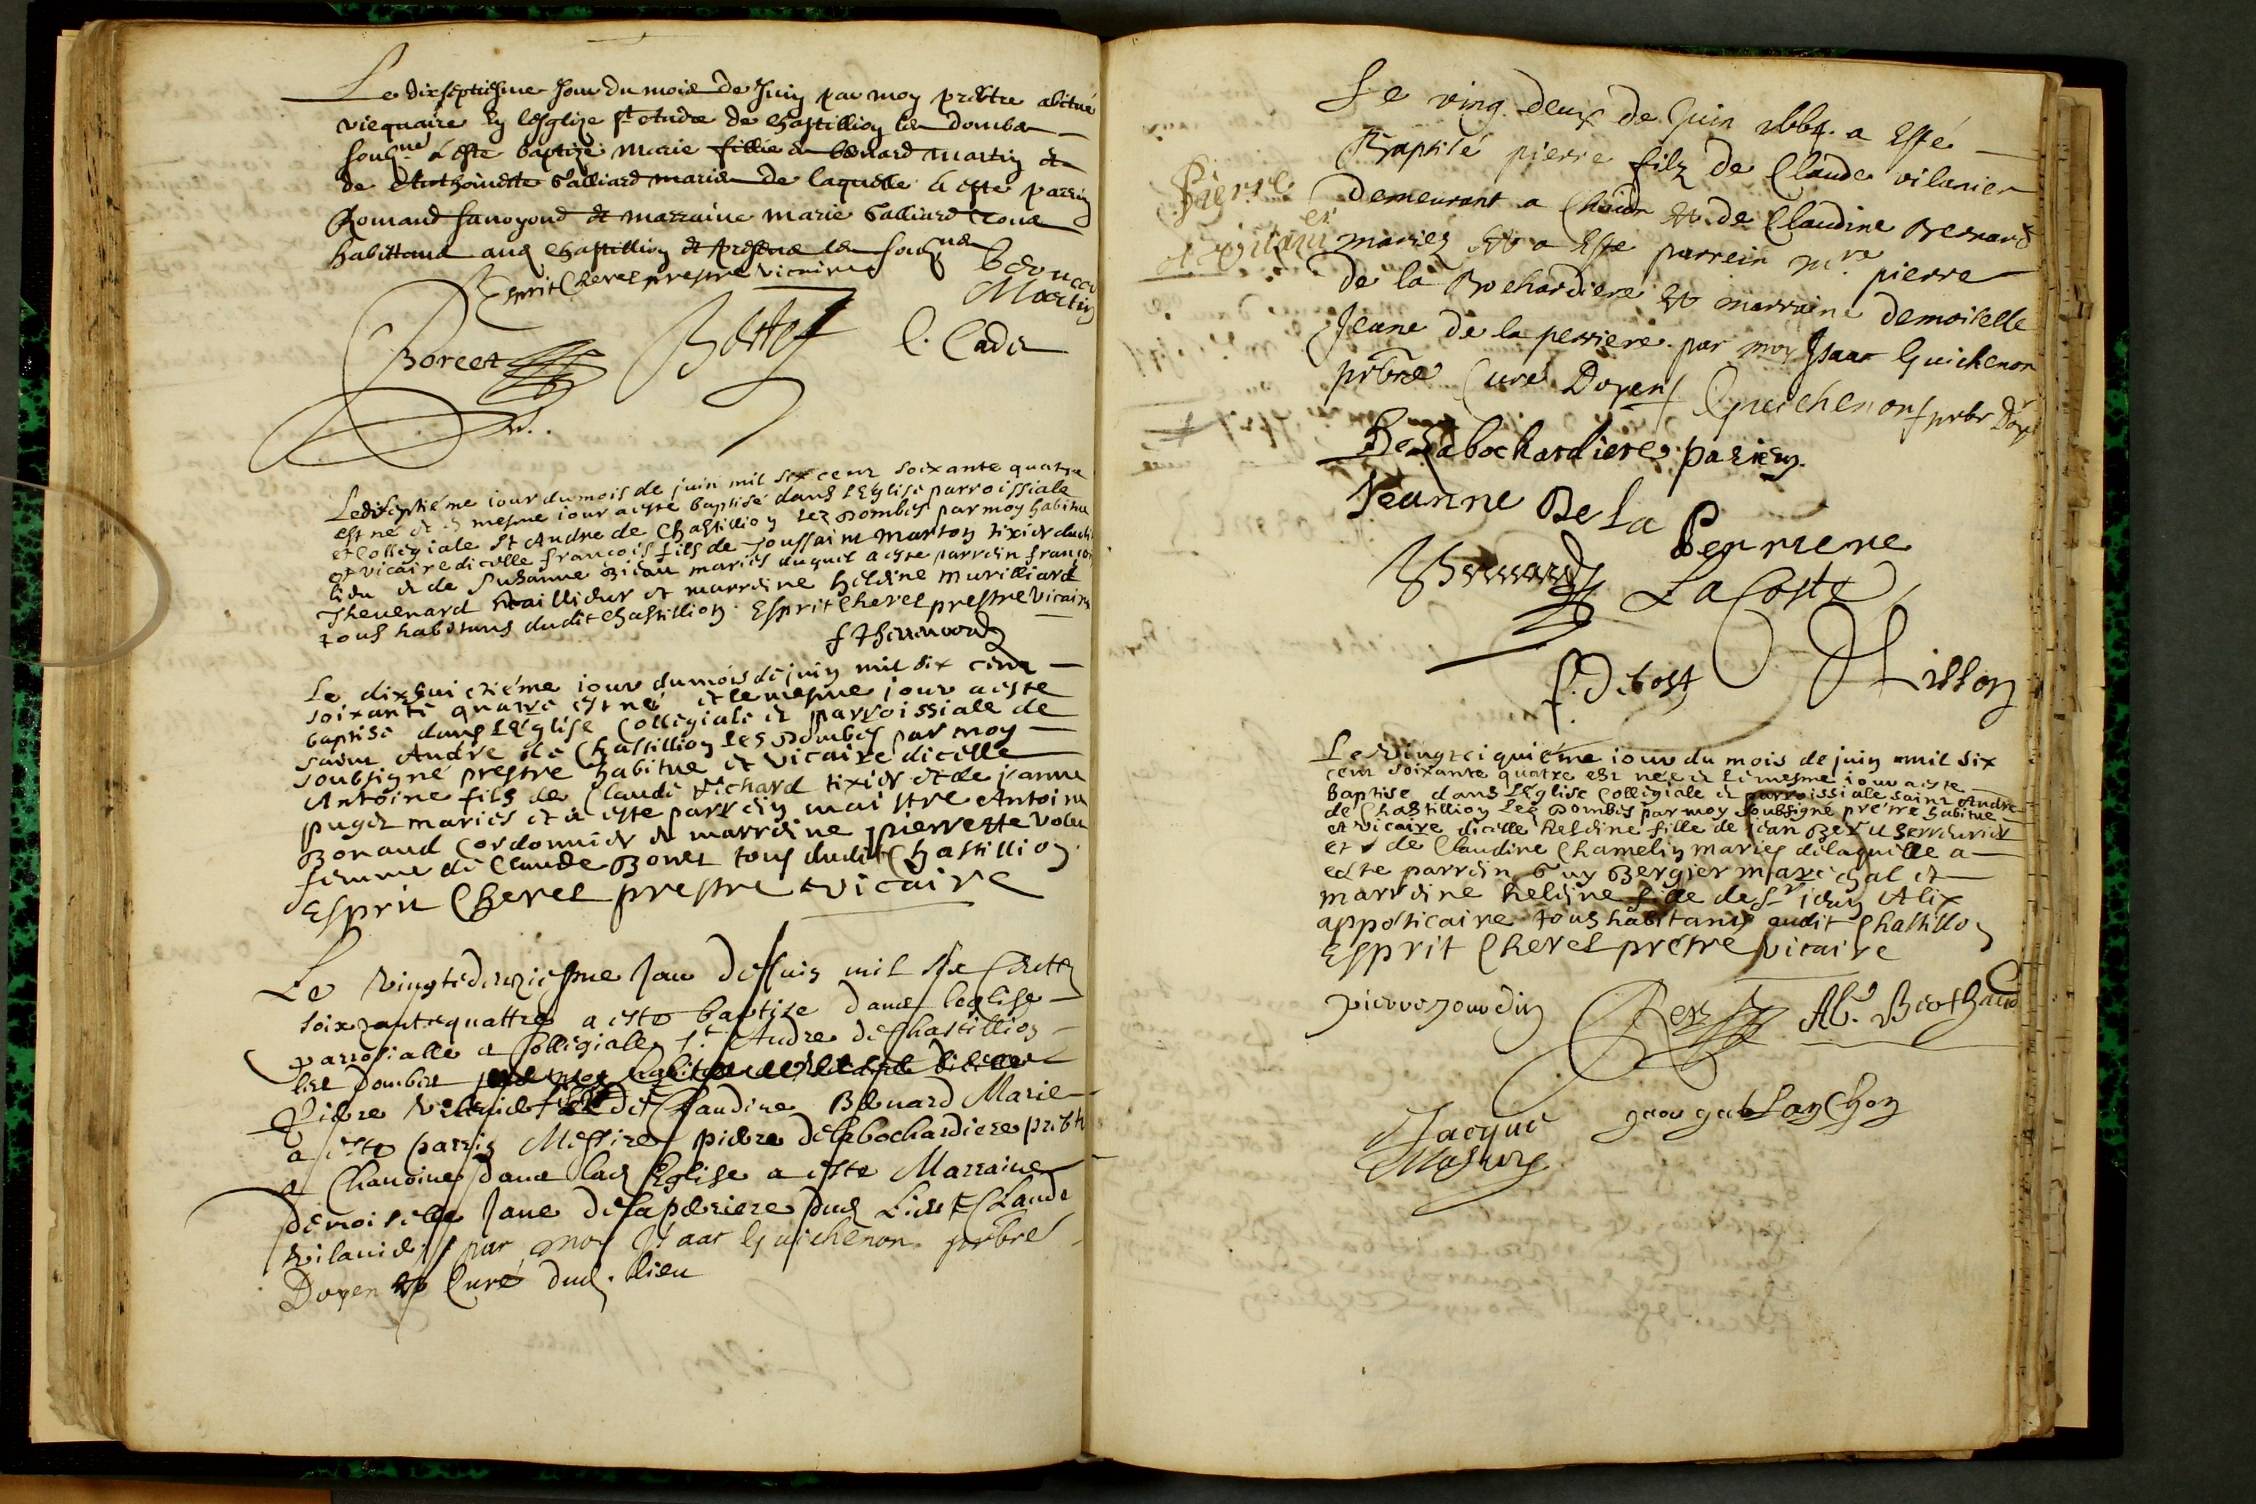 Le dixseptiesme Jour du mois de Juin par moy prebtre abitué
viequaire En lesglize st Andre de Chastillion les dombes
soubne a este baptize Marie fillie de benard Martin et
de Anthoinette Galliard maries de laquelle à este parrin
Romand et marraine Marie Galliard tous
habittans aud Chastillion et presens les soubnes
Esprit Cheret prestre vicaire
Martin
Borcet
C. Cadet
Le diseptiéme iour du mois de juin mil six cent soixante quatre
est né et le mesme iour a esté baptisé dans LEglise parroissiale
et Collegiale St Andre de Chastillion lez Dombes par moy habitue
et vicaire dicelle francois fils de Toussaint Marton tixier dudit
lieu et de Susanne maries duquel a este parrdin françois
Thevenard taillieur et marrdine heldine Murilliard
tous habitans dudit Chastillion. Esprit Cheret prestre Vicaire
f thevenard
Le dixhuictiéme iour du mois de juin mil six cent
soixante quatre est né et le mesme jour a este
baptise dans LEglise Collegiale et parroissiale de
saint Andre de Chastillion les Dombes par moy
soubsigné prestre habitue et vicaire dicelle
Antoine fils de Claude Richard tixier et de janne
puget maries et a este parrdin maistre Antoine
Bonaud Cordonnier et marrdine pierrette
femme de Claude Bonet tous dudit Chastillion
Esprit Cheret prestre vicaire
Le Vingtedeuziesme Jour de Juin mil six Centz
soixzantequattre a este baptize dans leglise
parrosialle et Collegialle St Andre de Chastillion
les dombes
Pierre de Claudine Benard Marie
a este parrin Messire pierre delabochardiere prebtre
et Chanoine dans lad Eglise a este Marraine
demoiselle Jane de laperiere dud Lieu Claude
vilanier par moy Isaac Guichenon prbre
Doyen et Curé dud. lieu
Le ving. deux de Juin 1664. a Esté
Baptisé pierre filz de Claude vilanier
demeurant a et de Claudine Bernard
mariez et a Este parrein mre pierre
de la Bochardiere et marraine demoiselle
Jeane de la perriere. par moy Isaac Guichenon
prbre Curé Doyen Guichenon prbr Doy
Pierre
Vilanier
De Labochardiere parien
Jeanne De La Perriere
Bernard
La Coste
f. Debost
Lisson
Le Vingtciquiéme iour du mois de juin mil six
cent soixante quatre est née et le mesme iour a este
baptise dans LEglise Collegiale et parroissiale saint Andre
de Chastillion lez Dombes par moy soubsigné pretre habitue
et vicaire dicelle heldine fille de jean serrurier
et de Claudine Chamelin maries de laquelle a
este parrdin Guy Bergier marichal et
marrdine heldine fille de Sr jean Alix
appoticaire tous habitans audit Chastillon
Esprit Cheret prétre vicaire
pierre jourdin
Al. Berthaud
Jacque